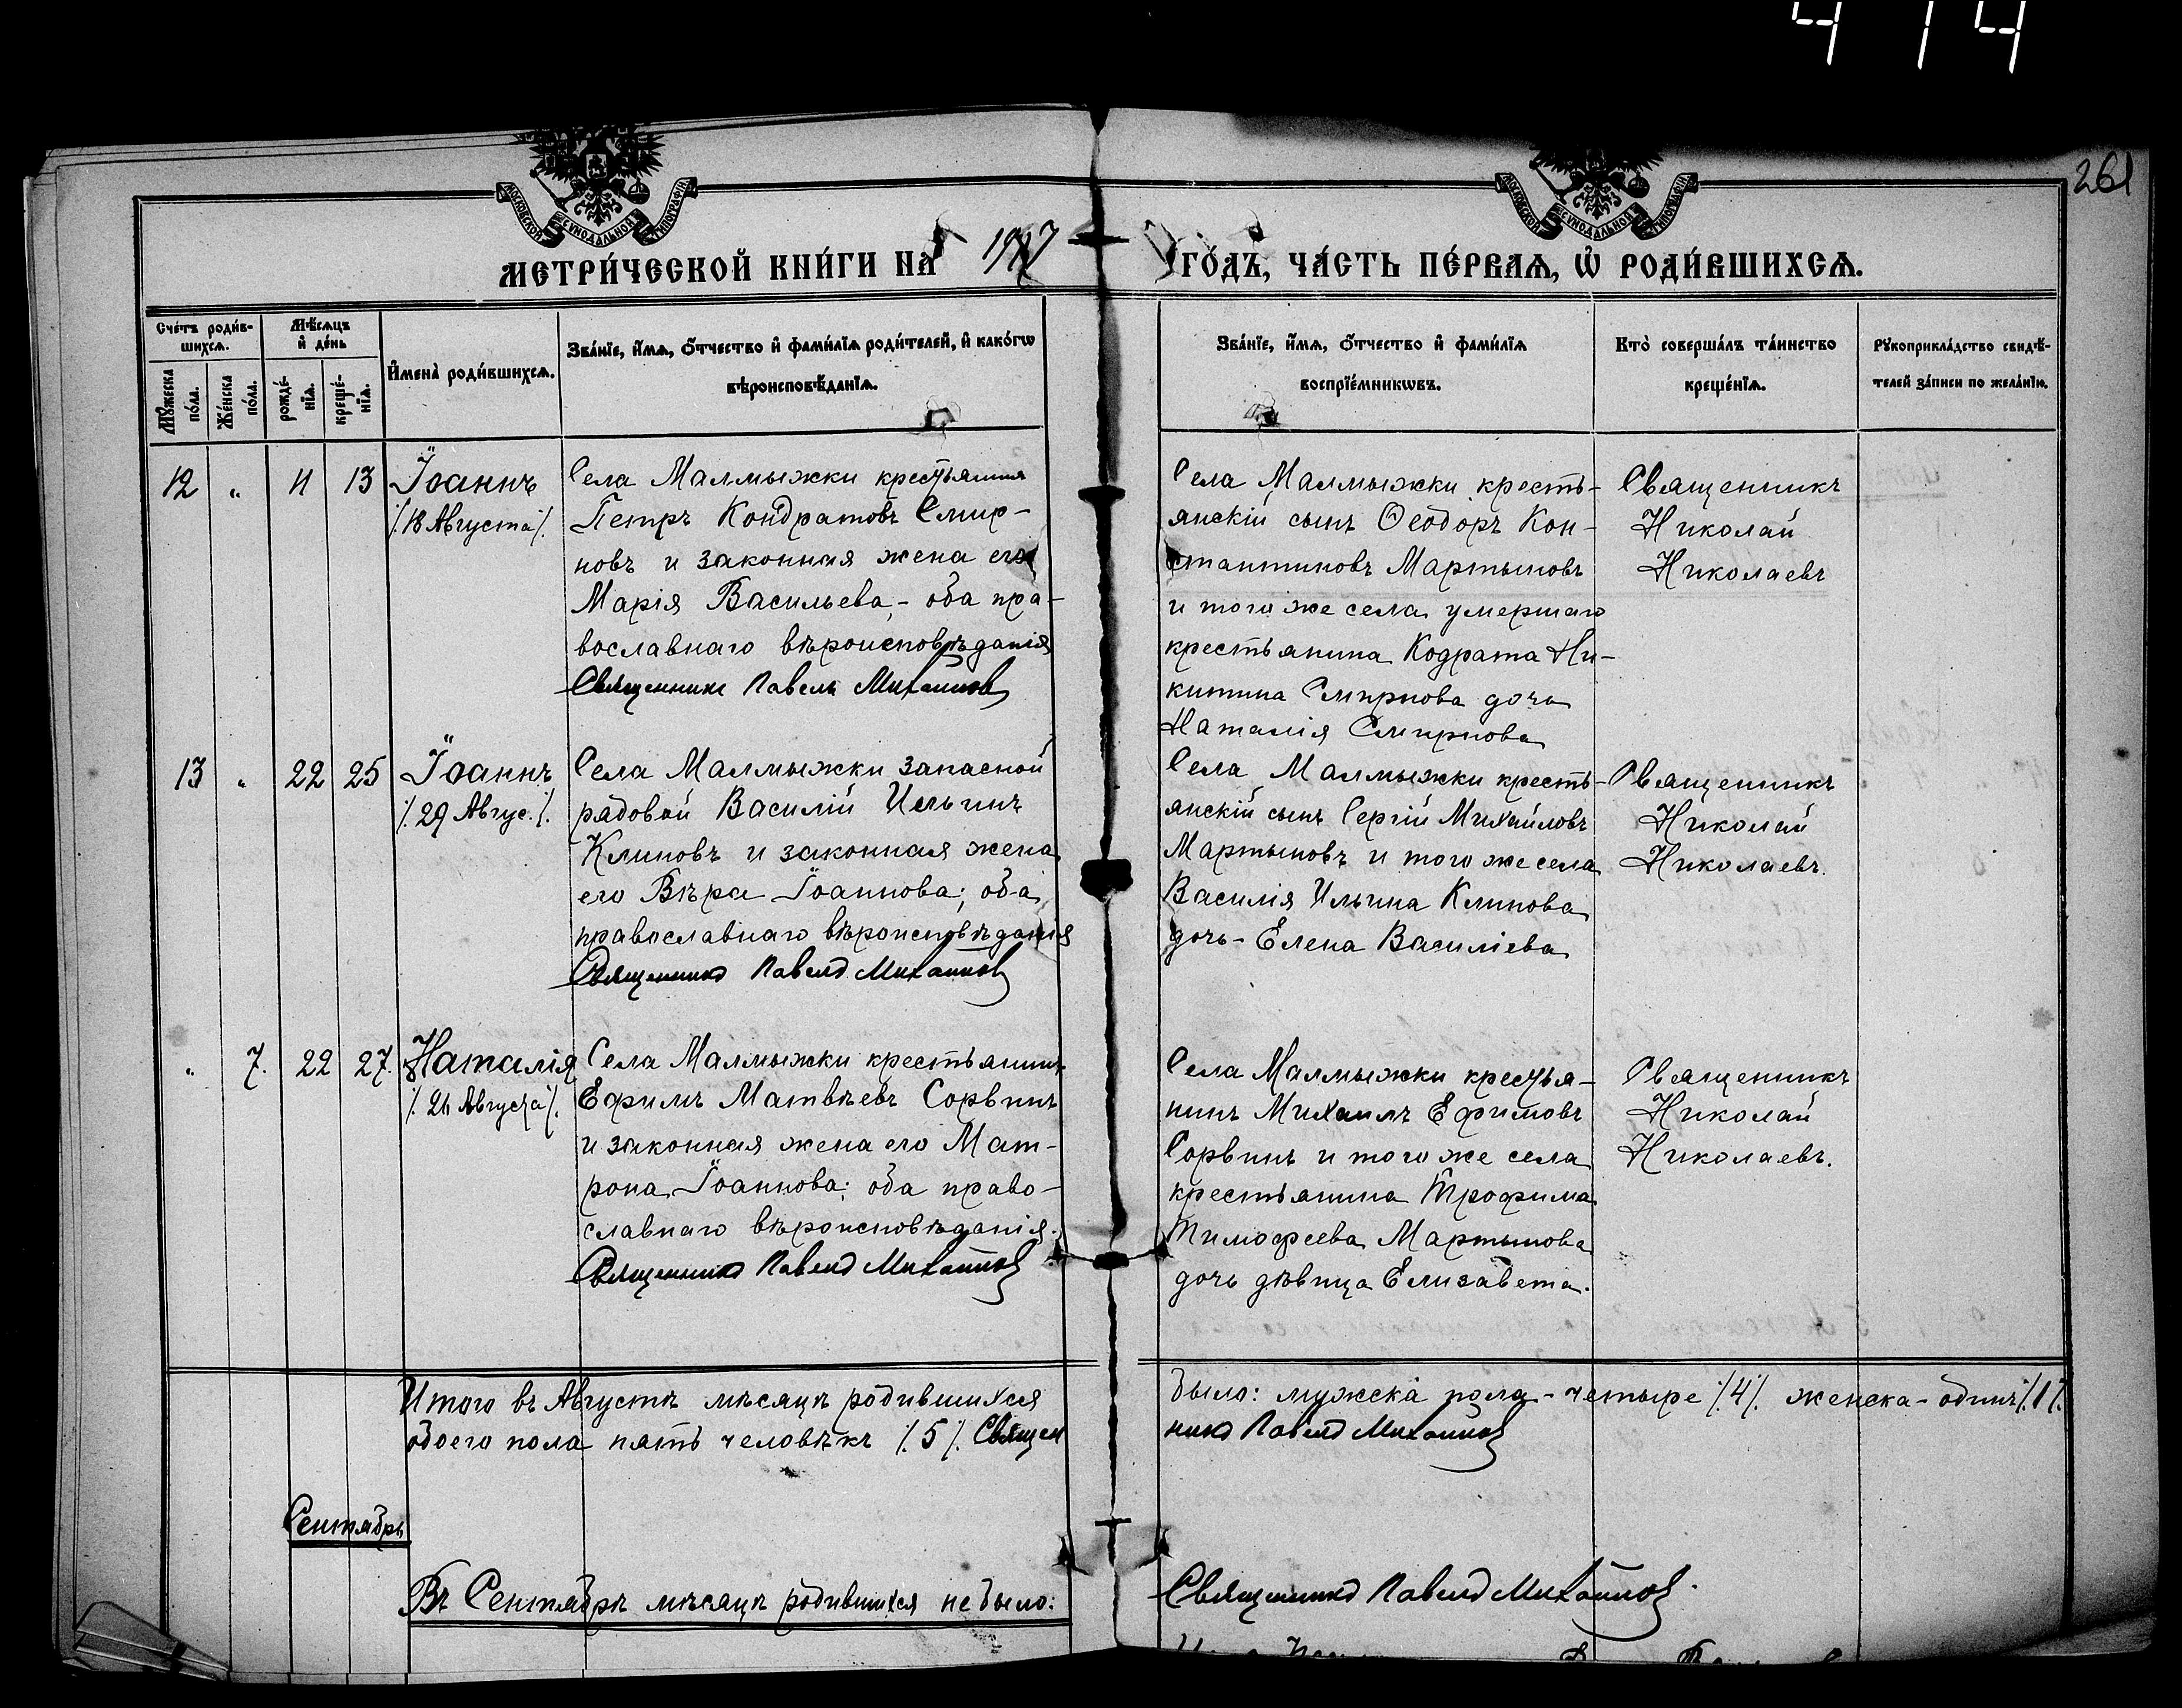 4 14
261
МОСКОВСКОЙ СѴНОДАЛЬНОЙ ТИПОГРАФІИ
МОСКОВСКОЙ СѴНОДАЛЬНОЙ ТИПОГРАФІИ
МЕТРИ́ЧЕСКОЙ КНИ́ГИ НА 1917 ГО́ДЪ, ЧА́СТЬ ПЕ́РВАѦ, Ѡ҆ РОДИ́ВШИХСѦ.
Сче́тъ роди́в-
шихсѧ.
Мꙋ́жеска по́ла.
Же́нска по́ла.
Мѣ́сѧцъ и҆ де́нь
рожде́-нїѧ.
креще́-нїѧ.
И҆мена̀ роди́вшихсѧ.
Зва́нїе, и҆́мѧ, ѻ҆́тчество и҆ фами́лїѧ роди́телей, и҆ како́гѡ
вѣроисповѣ́данїѧ.
Зва́нїе, и҆́мѧ, ѻ҆́тчество и҆ фами́лїѧ
воспрїе́мникѡвъ.
Кто̀ соверша́лъ та́инство
креще́нїѧ.
Рꙋкоприкла́дство свидѣ́-
телей за́писи по жела́нїю.
12 " 11 13 Іоаннъ
/. 18 Августа /.
Села Малмыжки крестьянинъ
Петръ Кондратовъ Смир-
новъ и законная жена его
Марія Васильева, - оба пра-
вославнаго вѣроисповѣданія
Священникъ Павелъ Михайловъ
Села Малмыжки кресть-
янскій сынъ Ѳеодоръ Кон-
стантиновъ Мартыновъ
и того же села умершаго
крестьянина Кодрата Ни-
китина Смирнова дочь
Наталія Смирнова
Священникъ
Николай
Николаевъ
13 " 22 25 Іоаннъ
/. 29 Авгус. /.
Села Малмыжки запасной
рядовой Василій Ильинъ
Климовъ и законная жена
его Вѣра Іоаннова; оба
православнаго вѣроисповѣданія
Священникъ Павелъ Михайловъ
Села Малмыжки кресть-
янскій сынъ Сергій Михайловъ
Мартыновъ и того же села
Василія Ильина Климова
дочь - Елена Василіева
Священникъ
Николай
Николаевъ.
" 7. 22 27. Наталія
/. 26 Августа /.
Села Малмыжки крестьянинъ
Ефимъ Матвѣевъ Сорвинъ
и законная жена его Мат-
рона Іоаннова; оба право-
славнаго вѣроисповѣданія.
Священникъ Павелъ Михайловъ
Села Малмыжки крестья-
нинъ Михаилъ Ефимовъ
Сорвинъ и того же села
крестьянина Трофима
Тимофеева Мартынова
дочь дѣвица Елизавета.
Священникъ
Николай
Николаевъ.
Итого въ Августѣ мѣсяцѣ родившихся было: мужска пола - четыре /.4/. женска - одинъ /.1/.
обоего пола пять человѣкъ /. 5 /. Священникъ Павелъ Михайловъ
Сентябрь
Въ Сентябрѣ мѣсяцѣ родившихся не было:
Священникъ Павелъ Михайловъ.